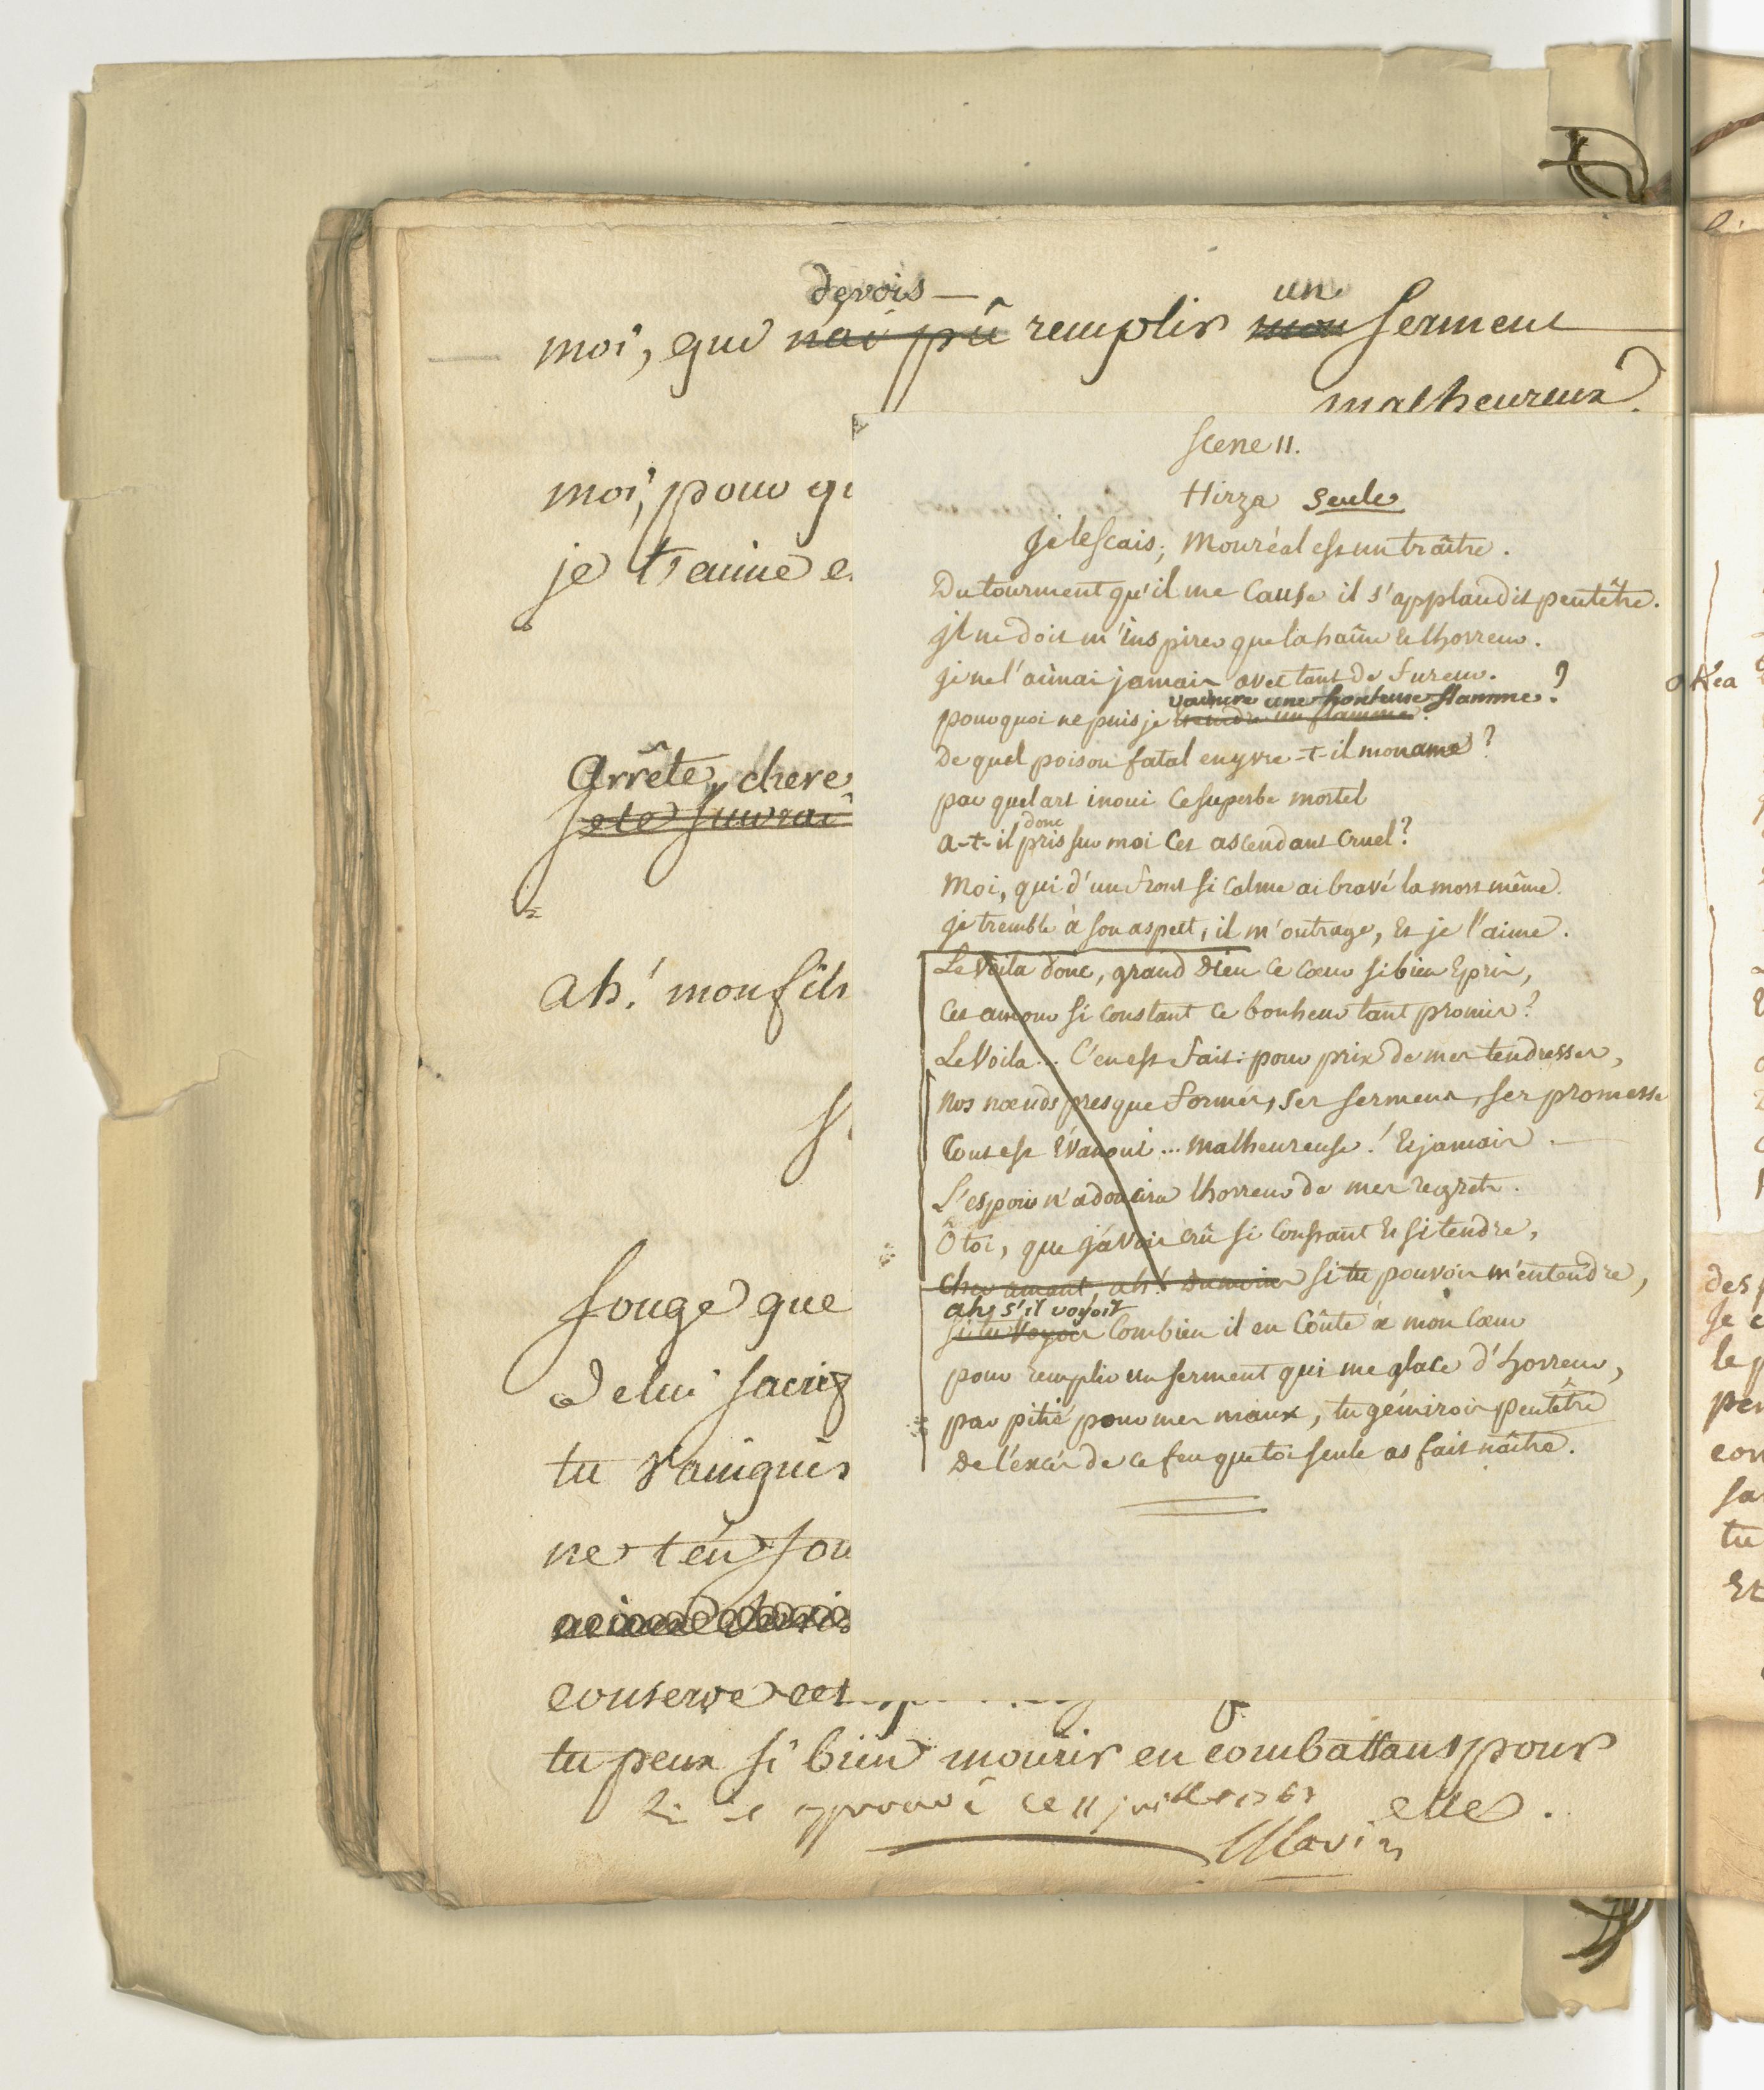 devois — un
moi, que n'ai pû remplir mon serment
malheureux.
moi, pour qu
je t'aime e
Arrête, chere
je te suivrai
ah! mon fils
songe que
De lui sacrif
tu vainquis
ne t'en sou
conserve cet
tu peux si bien mourir en combattant pour
elle.
approuvé ce 11 juillet 1767
Marin
Scene 11.
Hirza Seule
Je le scais; Mouréal est un traître.
Du tourment qu'il me Cause il s'applaudit peutêtre.
Il ne doit m'inspirer que la haîne et lhorreur.
Je ne l'aimai jamais avec tant de fureur.
vaincre une honteuse flamme?
pourquoi ne puis je un flamme?
De quel poison fatal enyvre-t-il mon ame?
par quel art inoui Ce superbe mortel
donc
a-t-il pris sur moi Cet ascendant Cruel?
Moi, qui d'un front si Calme ai bravé la mort même.
Je tremble à son aspect, il m'outrage, Et je l'aime.
Le Voila donc, grand Dieu Ce Cœur si bien Epris,
Cet amour si Constant Ce bonheur tant promis?
Le Voila... C'en est fait: pour prix de mes tendresses,
Nos nœuds presque formés, Ses Sermens, ses promesse
Tout est Évanoui... Malheureuse! Et jamais
L'espoir n'adoucira lhorreur de mes regrets.
Ô toi, que j'avois crû si Constant Et si tendre,
Cher amant, ah! Dumoins si tu pouvois m'entendre,
ah s'il voyoit
si tu voyois Combien il en Coûte a mon Cœur
pour remplir un serment qui me glace d'horreur,
par pitié pour mes maux, tu gémirois peutêtre
De l'excès de ce feu que toi seule as fait naître.
oKéa
des
Je
le p
per
con
sa
tu
Et